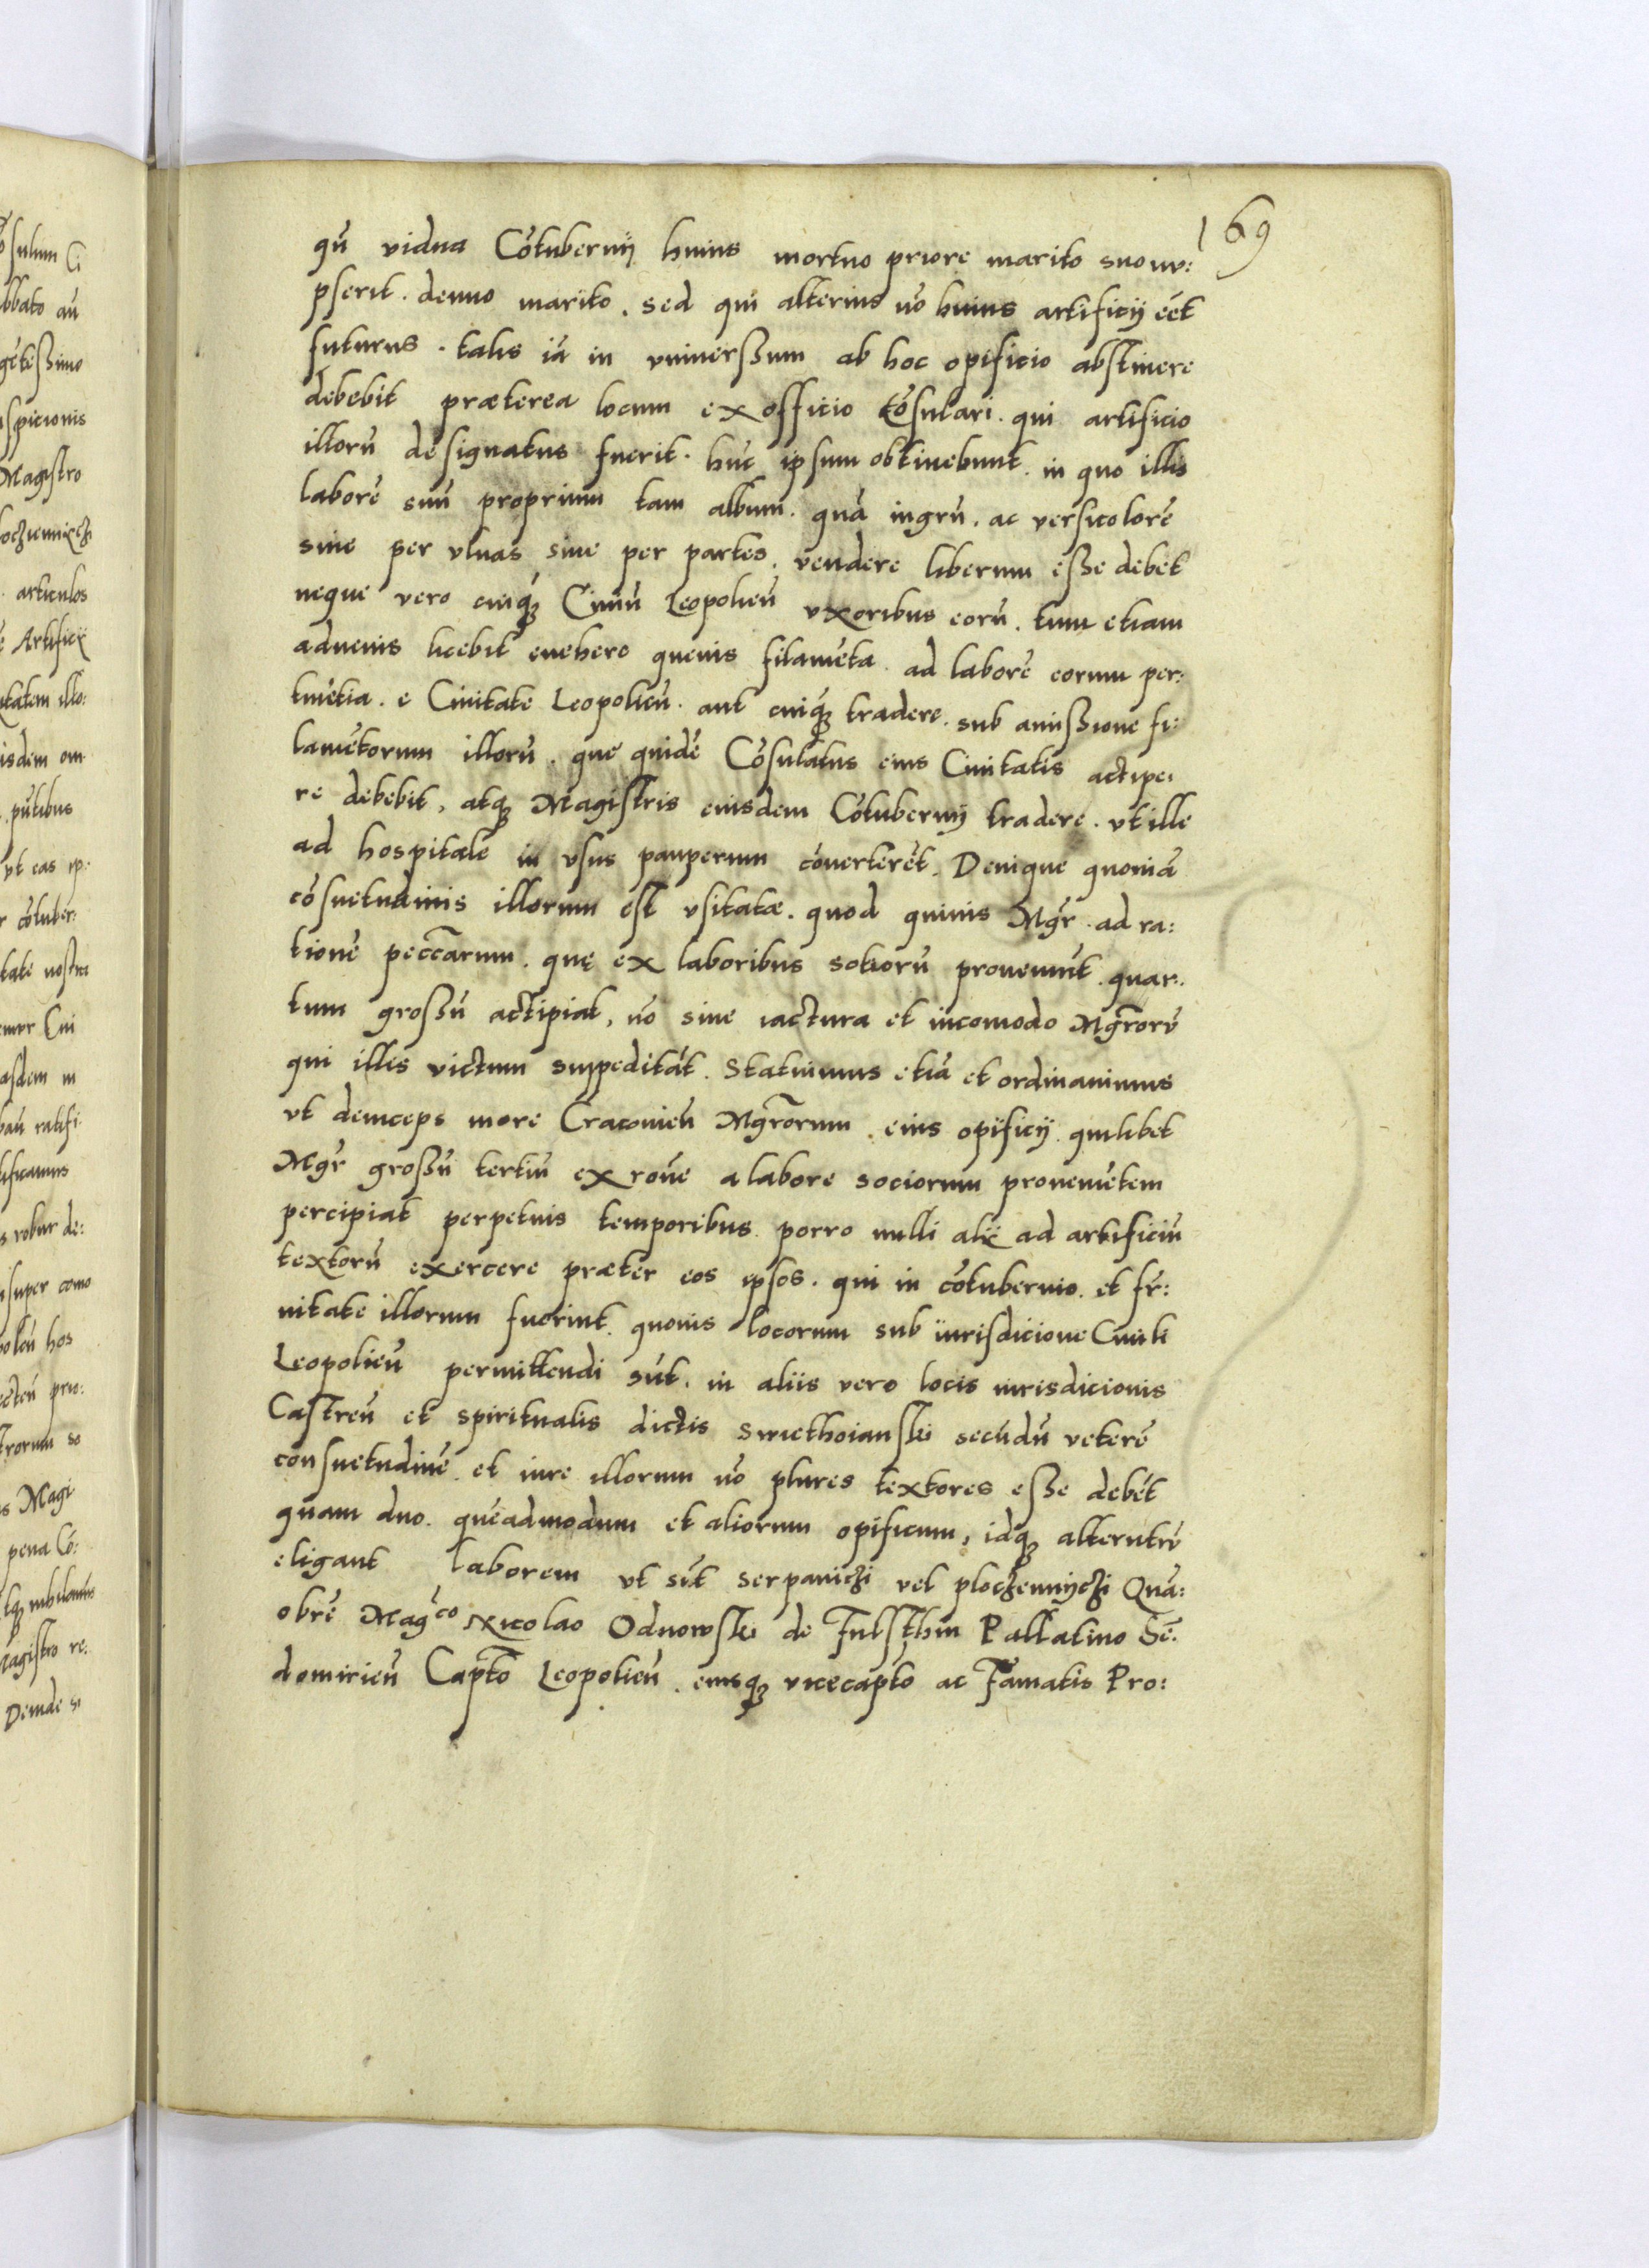 169
qū vidua Cōtubernij huius mortuo priore marito suo nu:
pserit. denuo marito. sed qui alterius nō huius artificij eēt
futurus. talis iā in vniuerssum ab hoc opificio abstinere
debebit præterea locum ex officio Cōsulari. qui artificio
illorū designatus fuerit. hūc ipsum obtinebunt. in quo illis
laborē suū proprium tam album. quā ingrū. ac versicolorē
siue per vlnas siue per partes. vendere liberum esse debet
neque vero cuiqȝ Ciuiū Leopolieñ vxoribus eorū. tum etiam
aduenis licebit euehere queuis filamēta ad laborē eorum per:
tinētia. e Ciuitate Leopolieñ. aut cuiqȝ tradere. sub amissione fi:
lamētorum illorū. que quidē Cōsulatus eius Ciuitatis actipe:
re debebit, atqȝ Magistris eiusdem Cōtubernij tradere. vt ille
ad hospitale in vsus pauperum cōuerterēt. Denique quoniā
cōsuetudinis illorum est vsitatæ. quod quiuis Mgr̄. ad ra:
tionē peccarum. quę ex laboribus sotiorū proueniūt. quar:
tum grossū actipiat, nō sine iactura et incomodo Mgrōrū
qui illis victum suppeditāt. Statuimus etiā et ordinauimus
vt deinceps more Cracouieñ Mgrōrum. eius opificij quilibet
Mgr̄ grossū tertiū ex rōne a labore sociorum prouenietem
percipiat perpetuis temporibus. porro nulli alij ad artificiū
textorū exercere præter eos ipsos. qui in cōtubernio. et fr̄:
nitate illorum fuerint. quouis locorum sub iurisdicione Ciuili
Leopolieñ permittendi sūt. in aliis vero locis iurisdicionis
Castreñ et spiritualis dictis Swiethoianski secūdū veterē
consuetudinē et iure illorum nō plures textores esse debēt
quam duo. quēadmodum et aliorum opificum, idqȝ alterutrū
eligant laborem vt sūt serpaniczi vel ploczennijczi Quā:
obrē Magco Nicolao Odnowski de Fulsthin Pallatino Sē:
domirieñ Capto Leopolieñ. eiusqȝ vicecapto ac Famatis Pro: